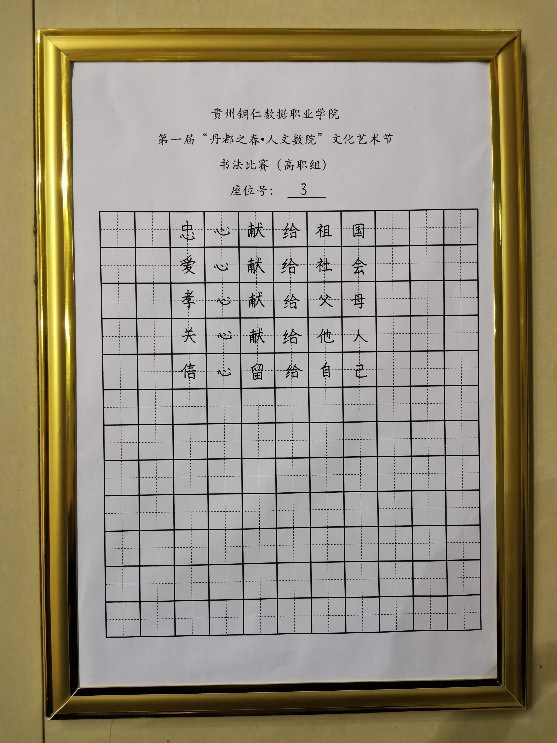 贵州铜仁数据职业学院
第一届“丹都之春•人文数院”文化艺术节
书法比赛（高职组）
座位号： 3
忠心献给祖国
爱心献给社会
孝心献给父母
关心献给他人
信心留给自己